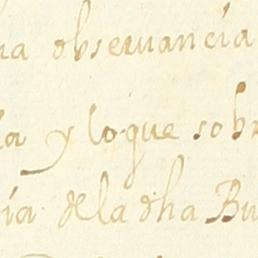 na obseruancia
ia y loque sobr
ia dela dha Bu